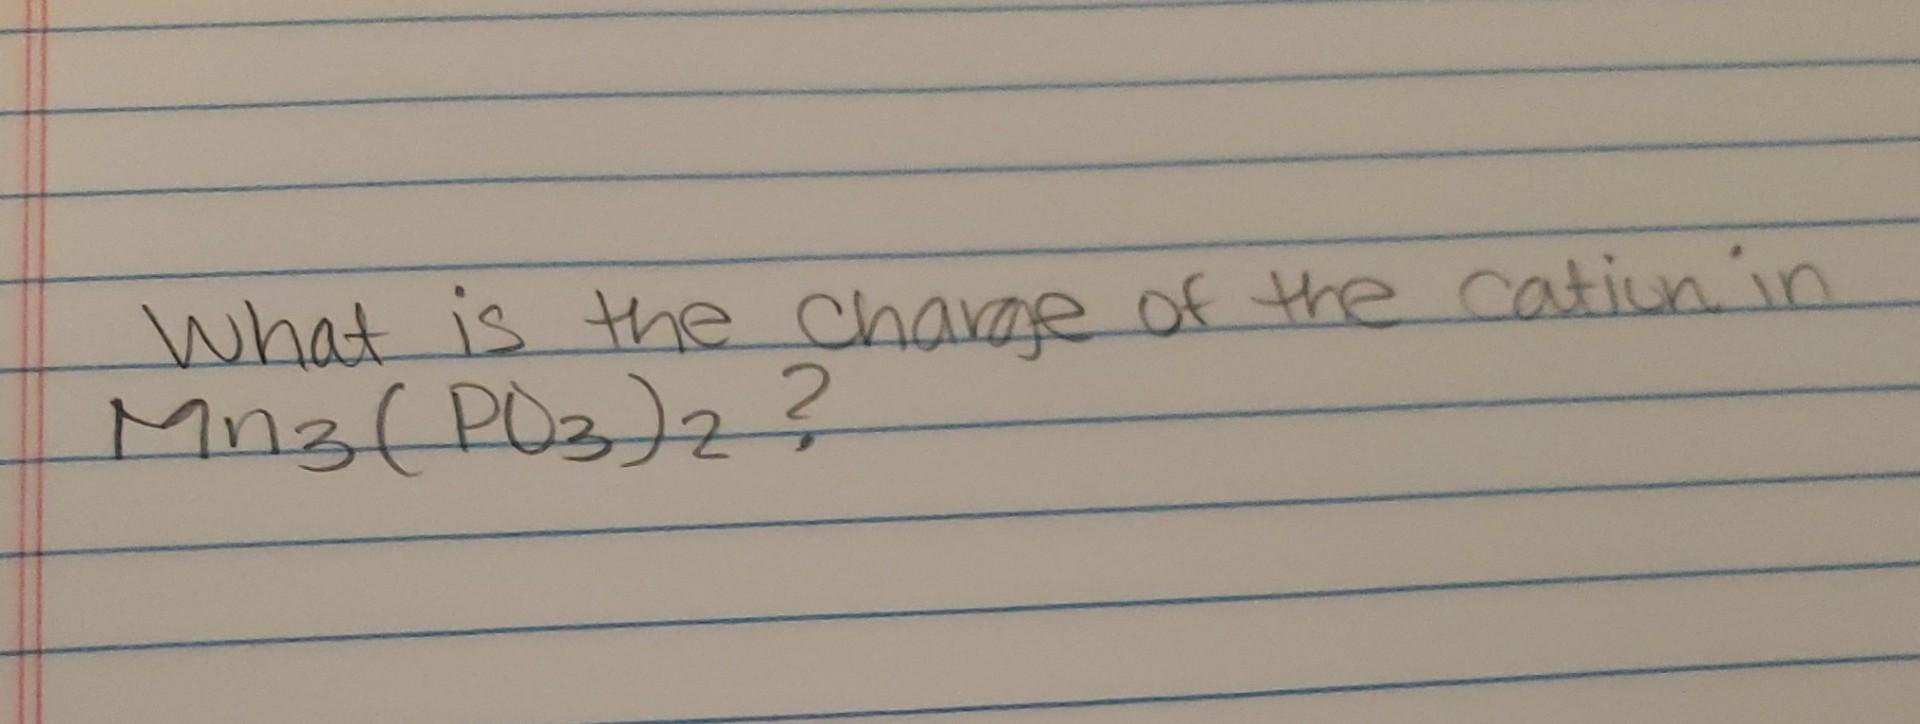 What is the charge of the cation in
Mn3(PO3)2?